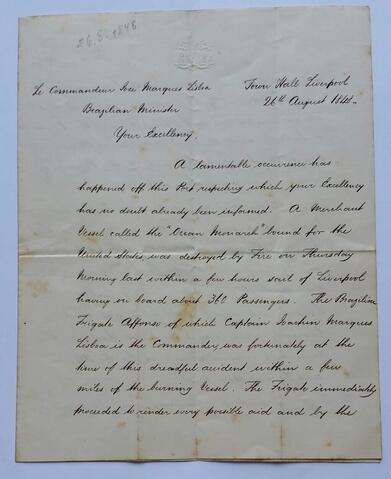 26.8.1848
Le Commandeur Jose Marques Lisboa
Brazilian Minister
Town Hall Liverpool
26th August 1848.
Your Excellency,
A lamentable occurrence has
happened off this Port respecting which your Excellency
has no doubt already been informed. A Merchant
Vessel called the "Ocean Monarch" bound for the
United States, was destroyed by Fire on Thursday
Morning last within a few hours sail of Liverpool
having on board about 360 Passengers. The Brazilian
Frigate Affonso of which Captain Joachin Marques
Lisboa is the Commander was fortunately at the
time of this dreadful accident within a few
miles of the burning Vessel. The Frigate immediately
proceeded to render every possible aid and by the